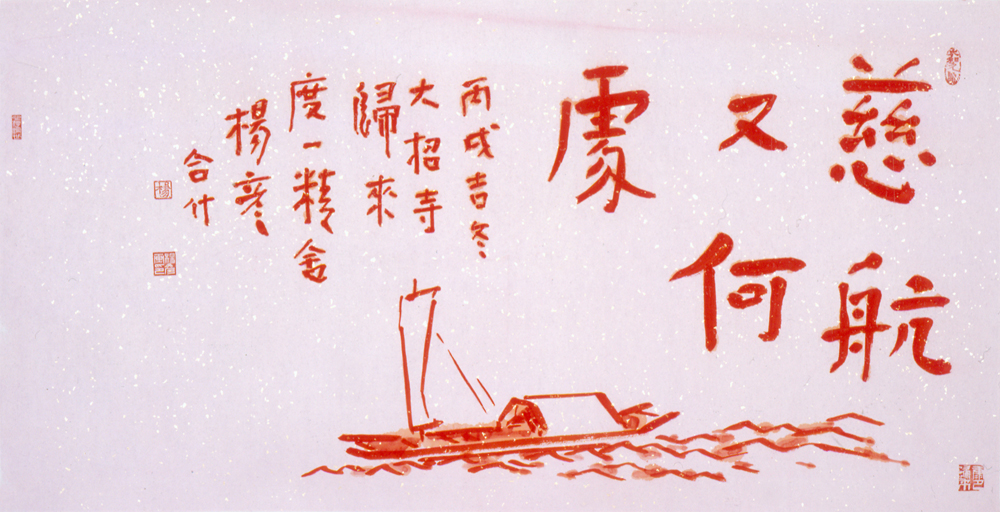 慈航
又何
處
丙戌吉冬
大招寺
歸來
度一精舍
楊彥
合什